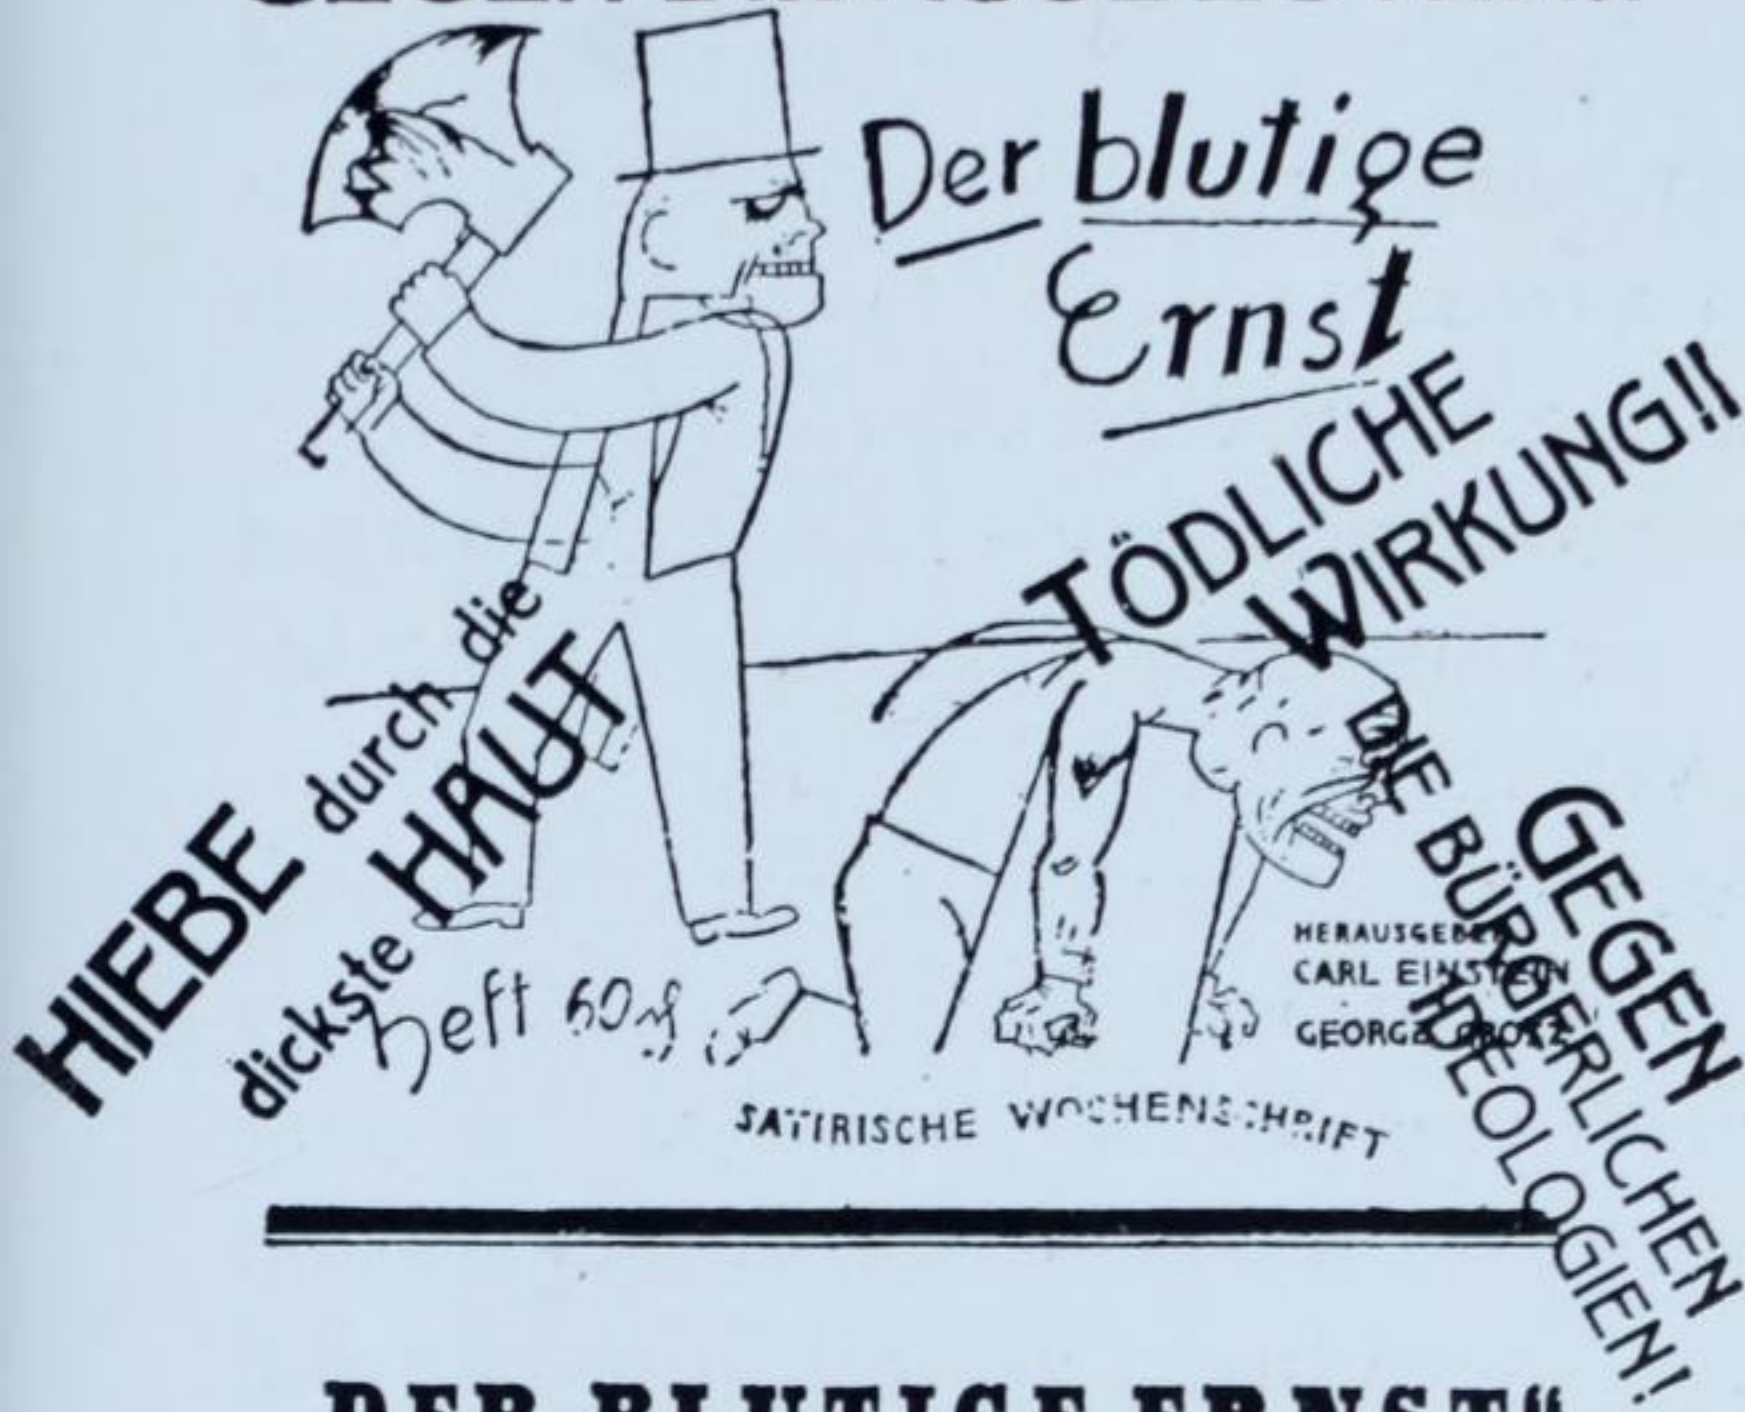 Der blutige
Ernst
TÖDLICHE
WIRKUNG!!
HIEBE durch die
dickste HAUT
GEGEN
DIE BÜRGERLICHEN
IDEOLOGIEN!
Heft 60
HERAUSGEBER
CARL EINSTEIN
GEORGE GROSZ
SATIRISCHE WOCHENSCHRIFT
DER BLUTIGE ERNST“